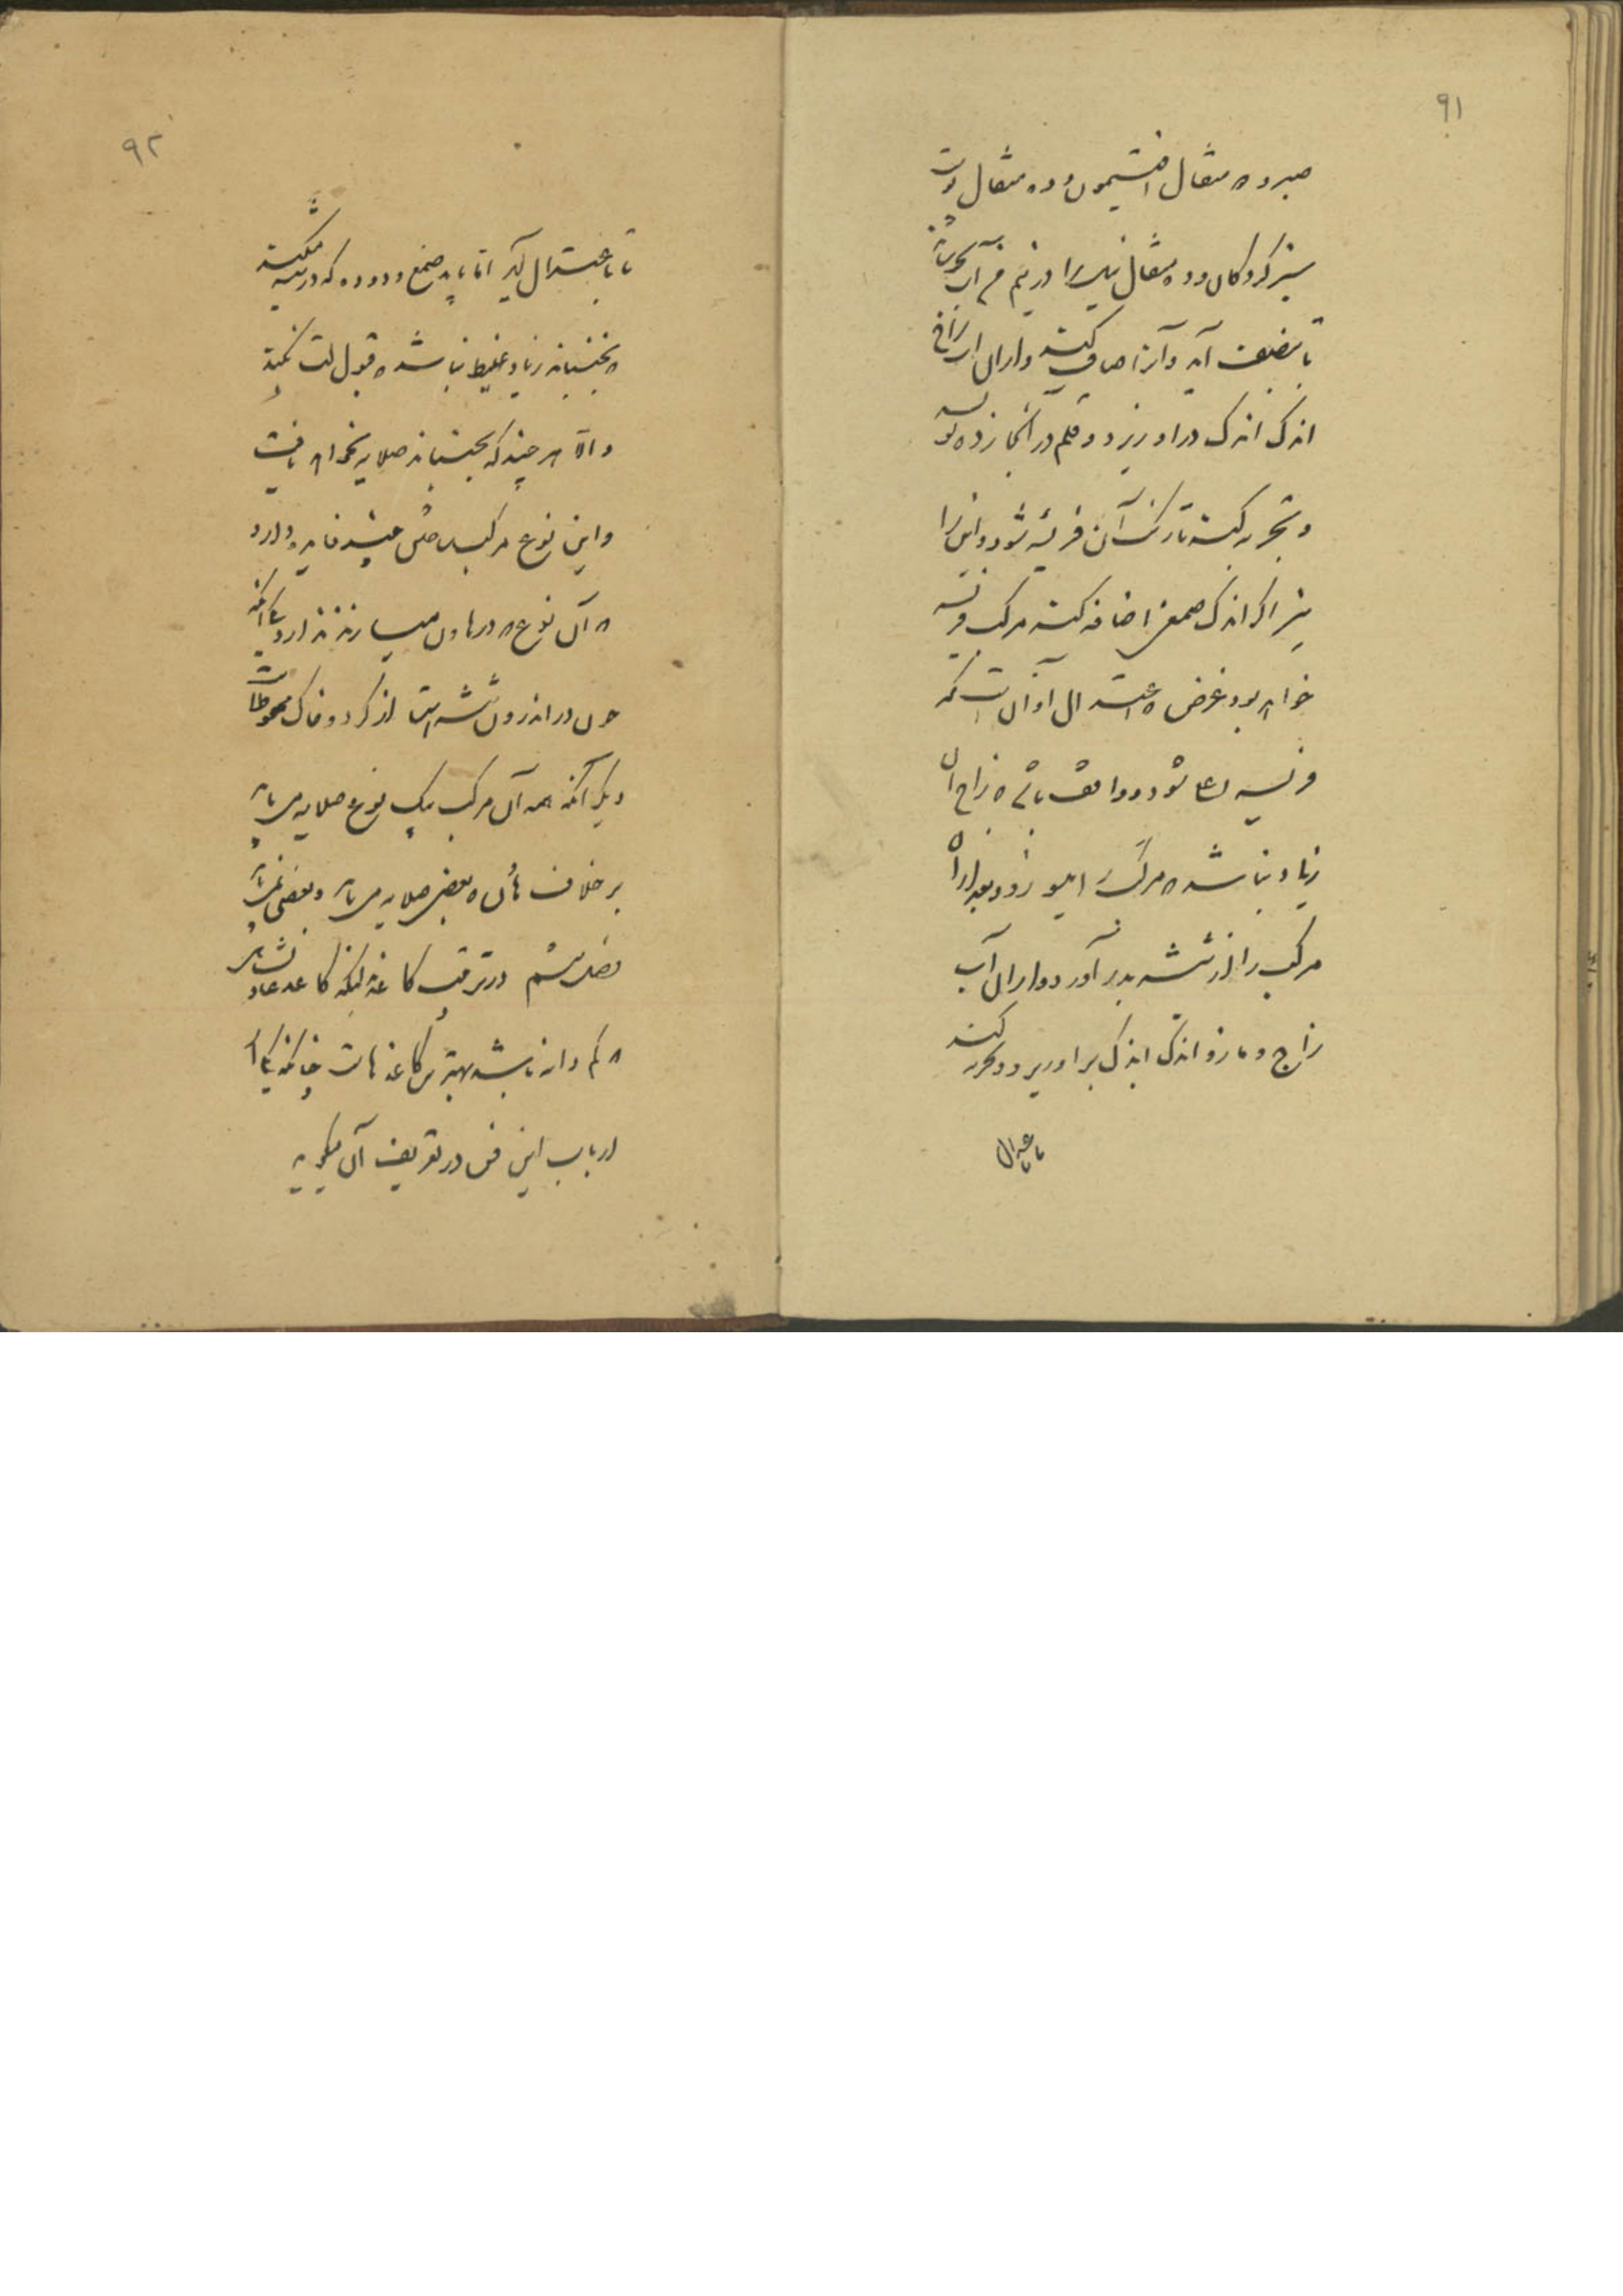 ۹۱
صبر و ده مثقال افتیمون و ده مثقال پوست
سبز کردکان و ده مثقال نیل را در نیم من آب بجوشاند
تا بنصف آید و آنرا صاف کنند و از آن آب زاج
اندک اندک در او ریزد و قلم در آنجا زده نویسد
و تجربه کنند تا رنگ آن فریسه شود و این را
نیز اگر اندک صمغی اضافه کنند مرکب فریسه
خواهد بود و غرض و اعتدال او آن است که
فریسه شود و واقف باشی که زاج آن
زیاد نباشد که مرکب را میسوزد و بعد از آن
مرکب را از شیشه بدر آورد و از آن آب
زاج و مازو اندک اندک بر او ریزد و تجربه کند
تا باعتدال
۹۲
تا باعتدال آید اما باید صمغ و دوده که در شیشه میکنند
که بجنبانند زیاد غلیظ نباشد که قبول لت نکند
و الا هر چند که بجنبانند صلایه نخواهد یافت
و این نوع مرکب ساختن چند فایده دارد
که آن نوع که در هاون میسازند ندارد یکی آنکه
چون در اندرون شیشه است از گرد و خاک محفوظ است
دیگر آنکه همه آن مرکب یک نوع صلایه می‌یابد
بر خلاف هاون که بعضی صلایه می‌یابد و بعضی نمی‌یابد
فصل ششم در ترتیب کاغذ بدانکه کاغذ عادلشاهی
که کم دانه باشد بهترین کاغذهاست چنانکه یکی از
ارباب این فن در تعریف آن میگوید